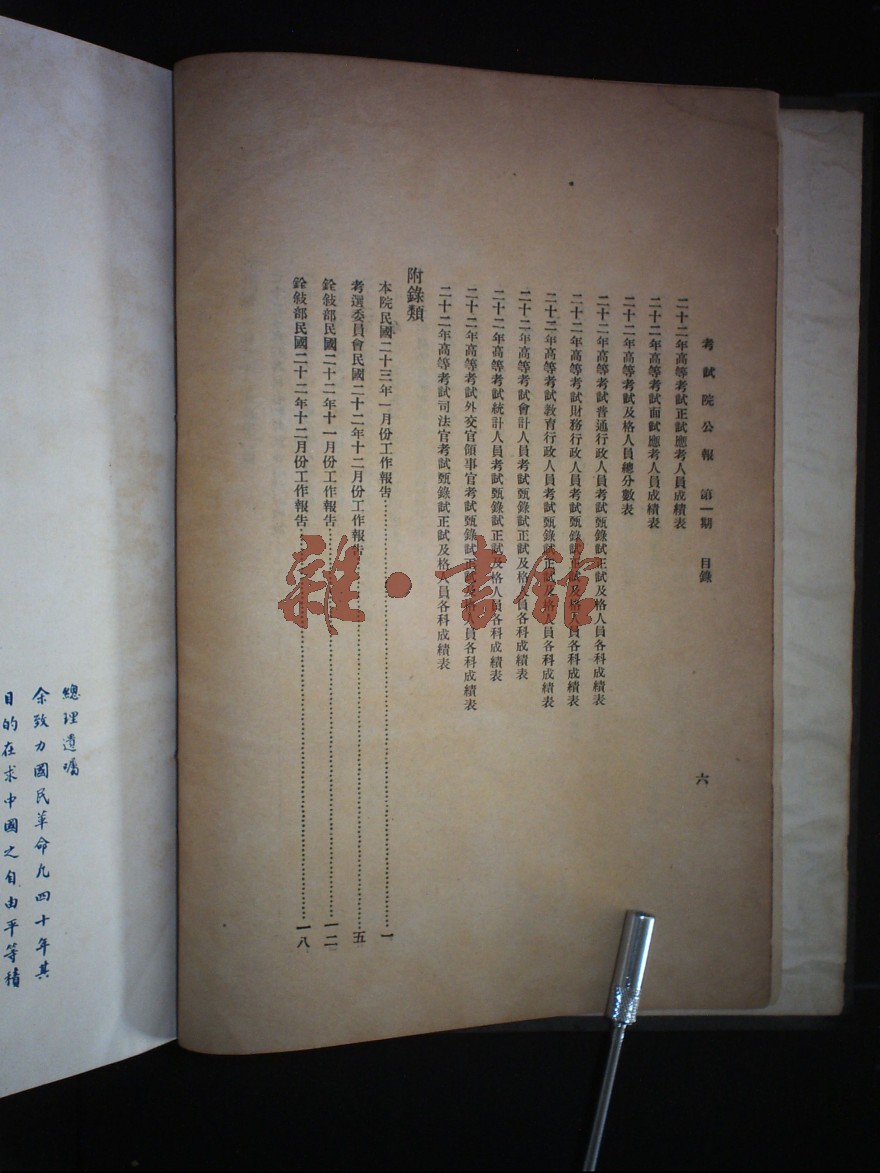 考試院公報　第一期　目錄　六
二十二年高等考試正試應考人員成績表
二十二年高等考試面試應考人員成績表
二十二年高等考試及格人員總分數表
二十二年高等考試普通行政人員考試甄錄試正試及格人員各科成績表
二十二年高等考試財務行政人員考試甄錄試正試及格人員各科成績表
二十二年高等考試教育行政人員考試甄錄試正試及格人員各科成績表
二十二年高等考試會計人員考試甄錄試正試及格人員各科成績表
二十二年高等考試統計人員考試甄錄試正試及格人員各科成績表
二十二年高等考試外交官領事官考試甄錄試正試及格人員各科成績表
二十二年高等考試司法官考試甄錄試正試及格人員各科成績表
附錄類
本院民國二十三年一月份工作報告……一
考選委員會民國二十二年十二月份工作報告……五
銓敍部民國二十二年十一月份工作報告……一二
銓敍部民國二十二年十二月份工作報告……一八
總理遺囑
余致力國民革命凡四十年其
目的在求中國之自由平等積
雜·書館